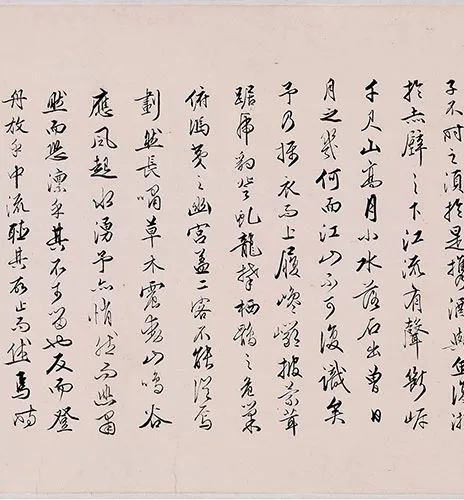 子不時之須於是攜酒與魚復游
於赤壁之下江流有聲斷岸
千尺山高月小水落石出曾日
月之幾何而江山不可復識矣
予乃攝衣而上履巉巖披蒙茸
踞虎豹登虬龍攀栖鶻之危巢
俯馮夷之幽宮蓋二客不能從焉
劃然長嘯草木震動山鳴谷
應風起水湧予亦悄然而悲肅
然而恐凜乎其不可留也反而登
舟放乎中流聽其所止而休焉時